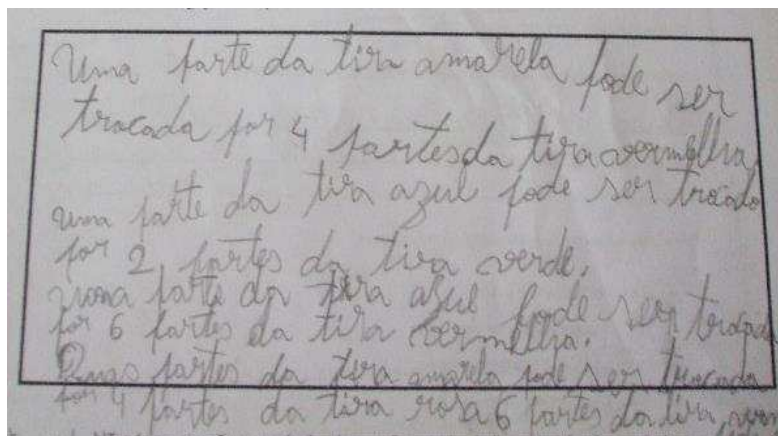 Uma parte da tira amarela pode ser
trocada por 4 partes da tira vermelha
uma parte da tira azul pode ser trocado
por 2 partes da tira verde.
uma parte da tira azul pode ser trocada
por 6 partes da tira vermelha.
Duas partes da tira amarela pode ser trocada
por 4 partes da tira rosa 6 partes da tira